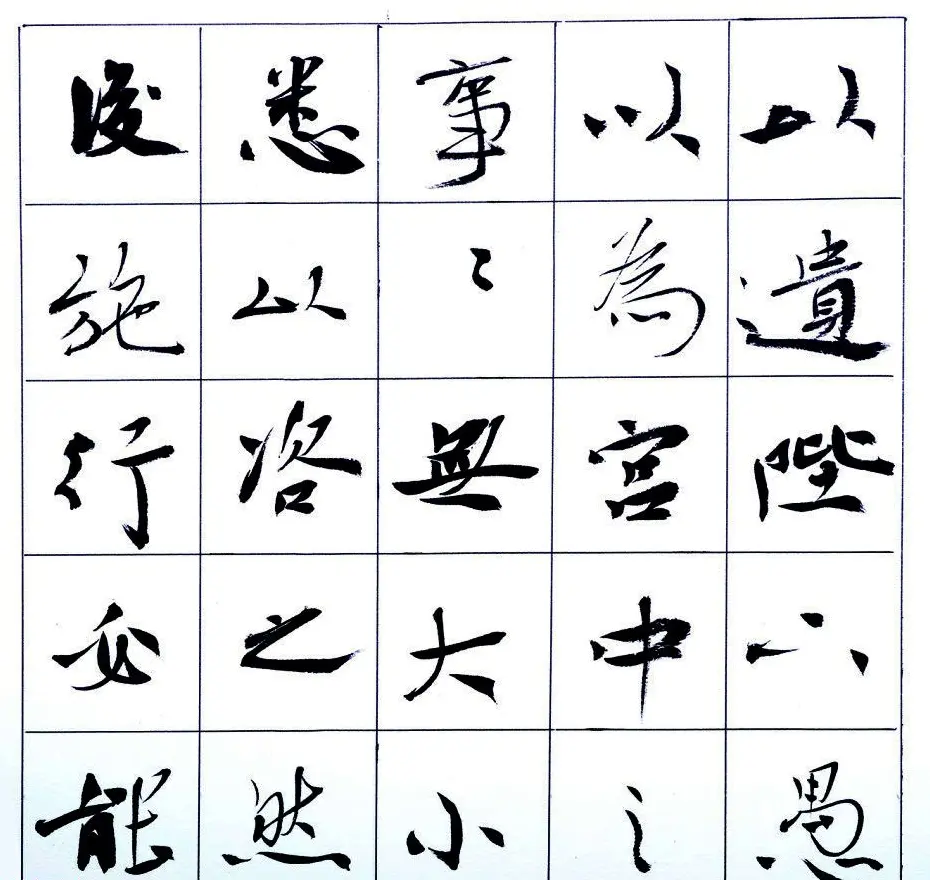 以遺陛下愚
以為宮中之
事〻無大小
悉以咨之然
後施行必能